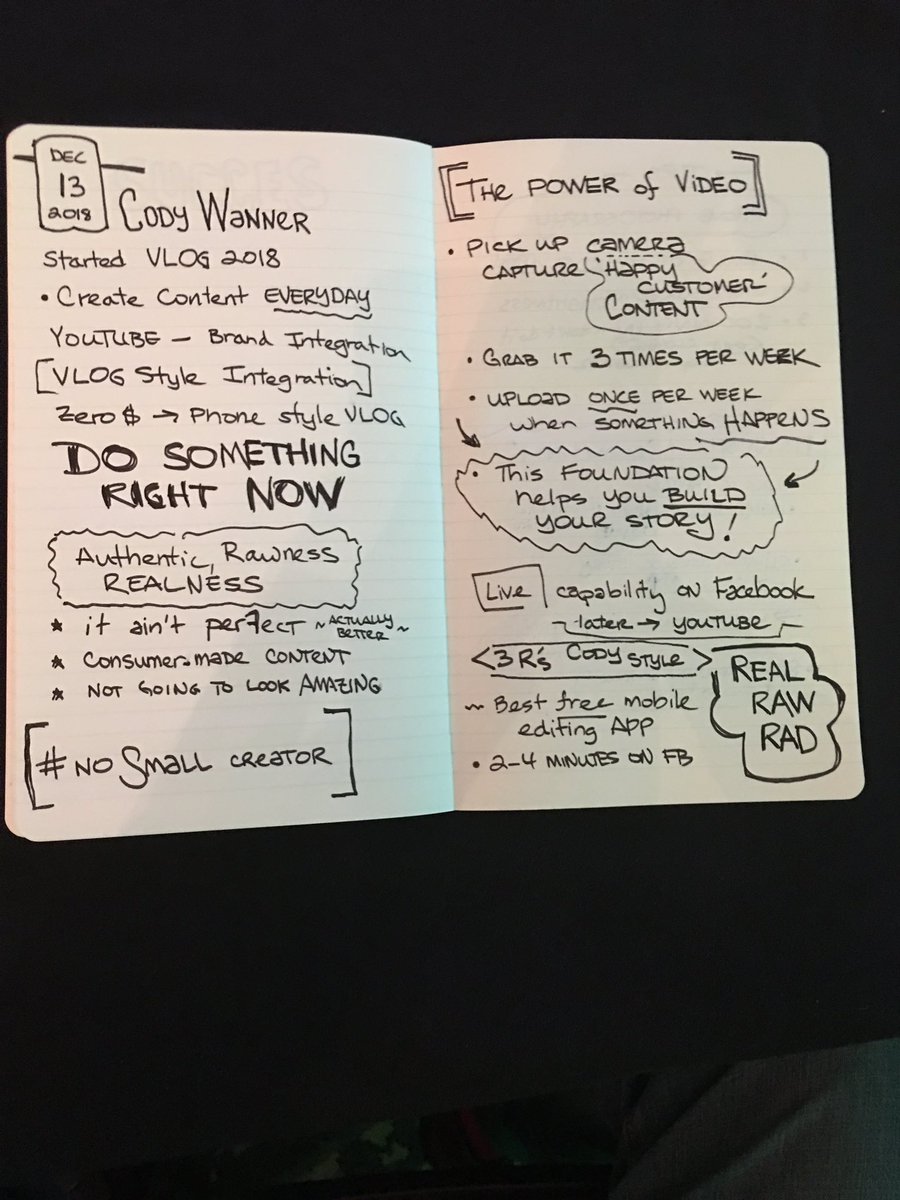 DEC
13
2018
CODY WANNER
Started VLOG 2018
• Create Content EVERYDAY
YOUTUBE — Brand Integration
[VLOG Style Integration]
Zero $ → Phone style VLOG
DO SOMETHING
RIGHT NOW
Authentic, Rawness
REALNESS
* it ain't perfect ~ACTUALLY
BETTER~
* Consumer-made CONTENT
* NOT GOING TO LOOK AMAZING
[# NO SMALL CREATOR]
[THE POWER of VIDEO]
• PICK UP camera
CAPTURE 'Happy
CUSTOMER'
CONTENT
• GRAB IT 3 TIMES PER WEEK
• UPLOAD ONCE PER WEEK
when SOMETHING HAPPENS
• This FOUNDATION
helps you BUILD
YOUR STORY!
Live capability ON Facebook
later → YOUTUBE
<3 R's CODY STYLE>
~ Best free mobile
editing APP
• 2-4 MINUTES ON FB
REAL
RAW
RAD